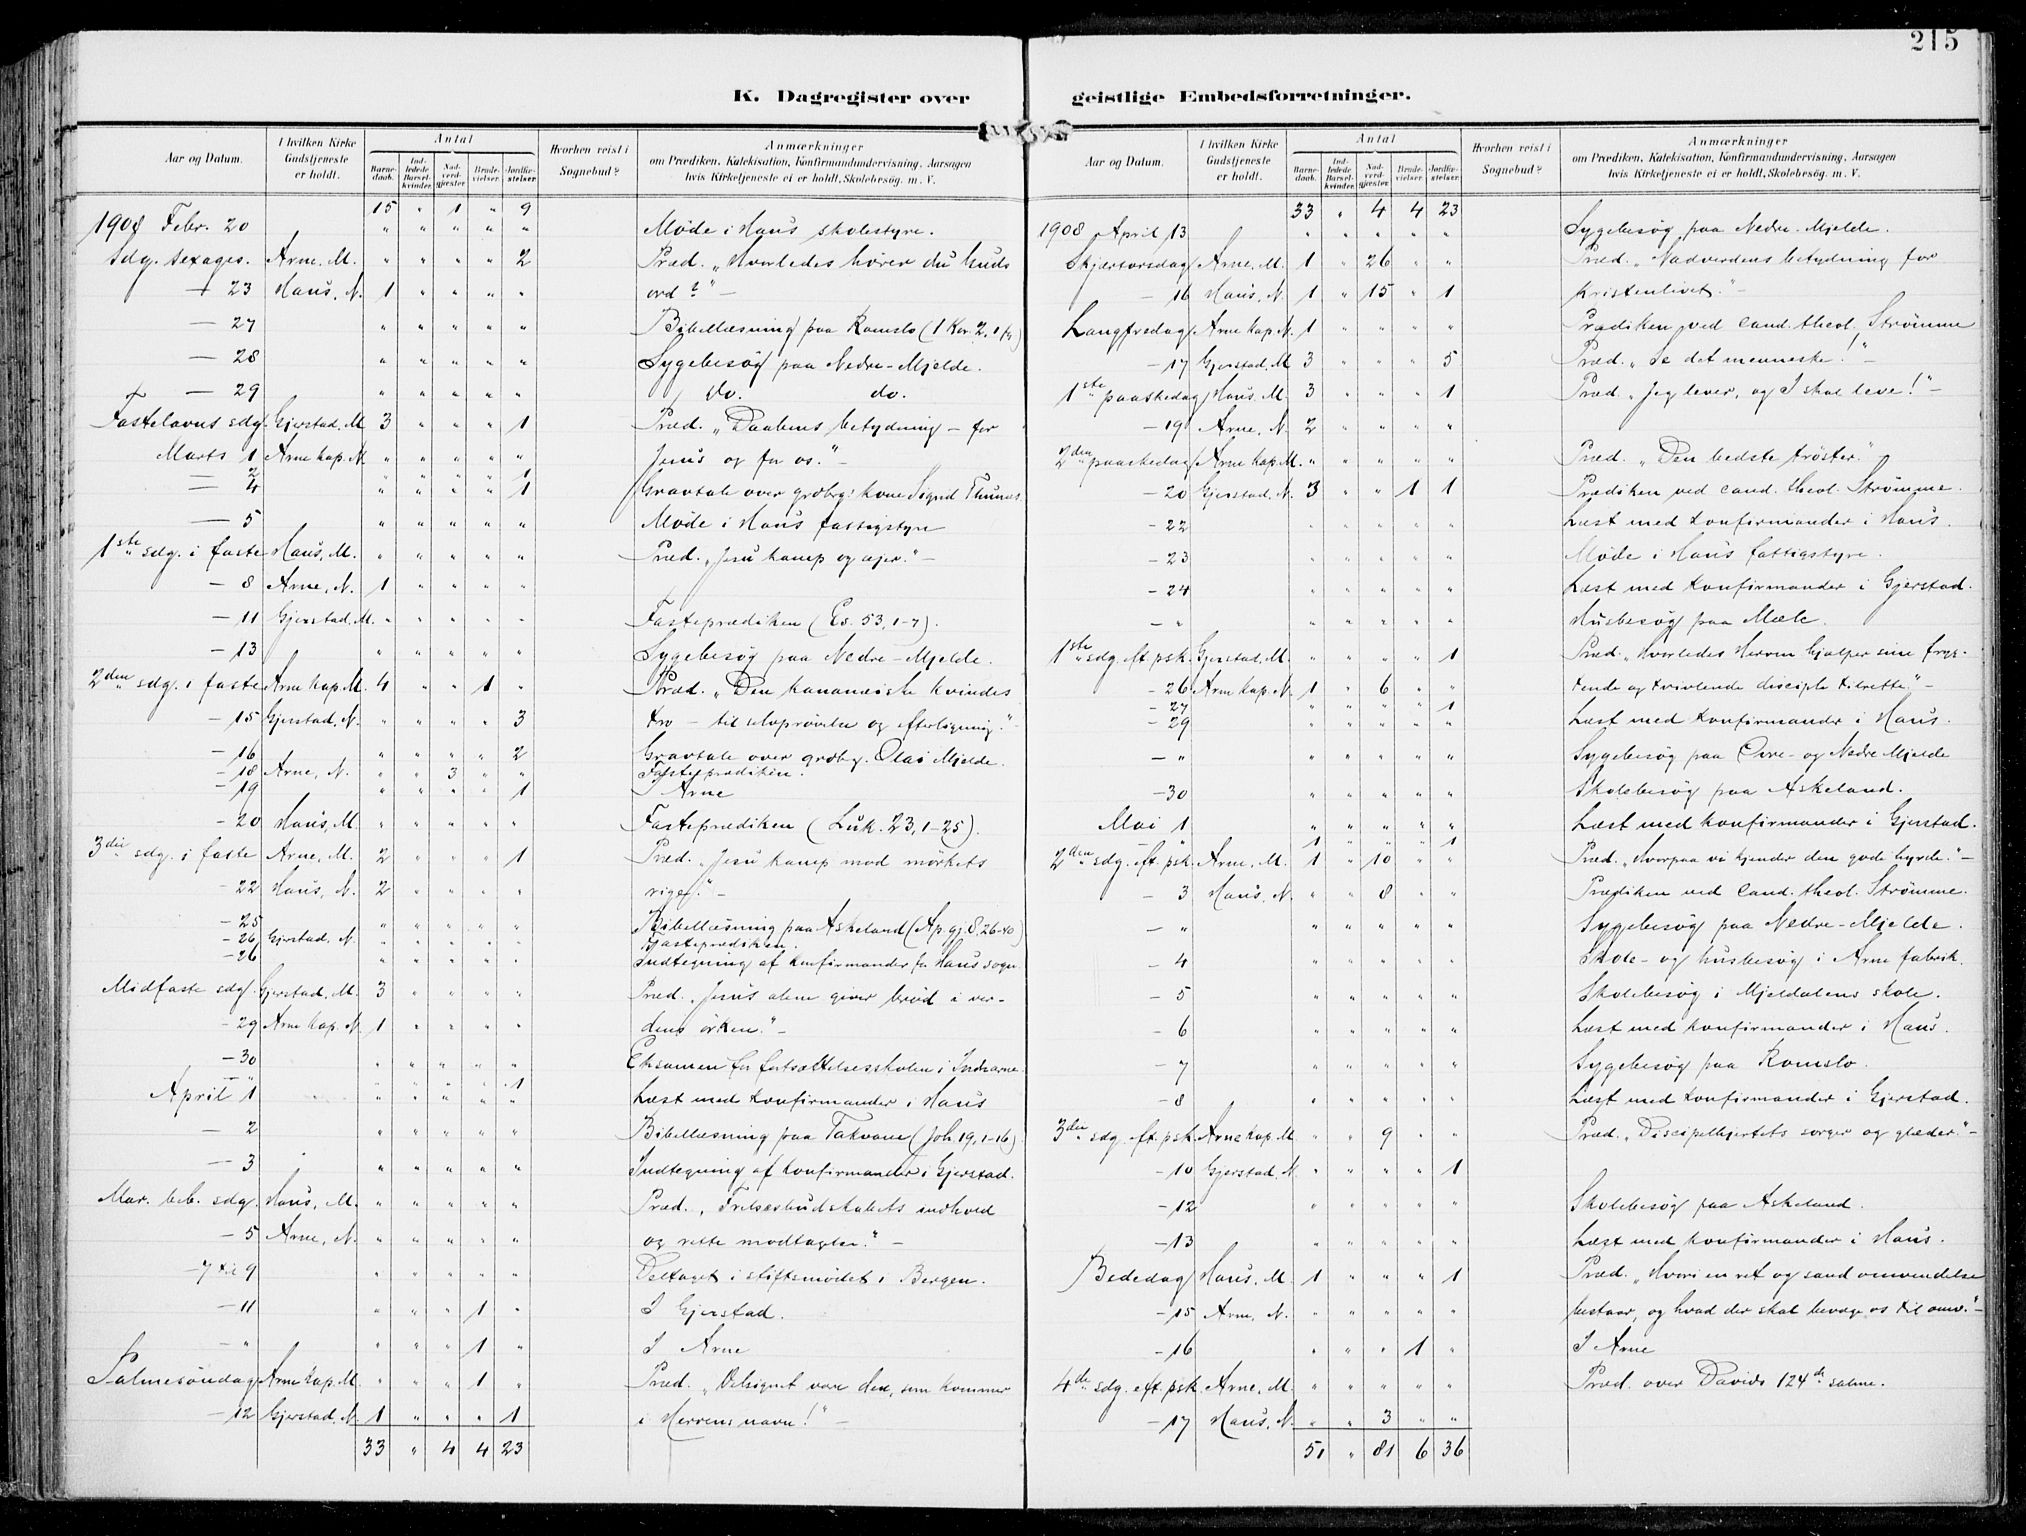 215
K. Dagregister over geistlige Embedsforretninger.
Aar og Datum. | I hvilken Kirke Gudstjeneste er holdt. | Antal | Barnedaab. | Indledede Barselkvinder. | Nadverdgjester | Brudevielser. | Jordfæstelser. | Hvorhen reist i Sognebud? | Anmærkninger om Prædiken, Katekisation, Konfirmandundervisning, Aarsagen hvis Kirketjeneste ei er holdt, Skolebesøg. m. V.
15 " 1 " 9
1908 Febr. 20 " " " " " Møde i Haus skolestyre.
Sdg. sexages. Arne, M. " " " " 2 Præd. "Hvorledes hører du Guds
— 23 Haus, N. 1 " " " " ord?" —
— 27 " " " " " Bibellæsning paa Romslo (1 Kor. 2, 1 flg)
— 28 " " " " " Sygebesøg paa Nedre-Mjelde.
— 29 " " " " " do. do.
Fastelavns sdg. Gjerstad, M 3 " " " 1 Præd. "Daabens betydning – for
Marts 1 Arne kap. N. " " " " " Jesus og for os." —
— 2 " " " " 1
— 4 " " " " 1 Gravtale over grdbrgs kone Sigrid Thunes.
— 5 " " " " " Møde i Haus fattigstyre
1ste sdg. i faste Haus, M. " " " " " Præd. "Jesu kamp og sejer." —
— 8 Arne, N. 1 " " " "
— 11 Gjerstad, M. " " " " " Fasteprædiken (Es. 53, 1-7).
— 13 " " " " " Sygebesøg paa Nedre-Mjelde.
2den sdg. i faste Arne kap. M. 4 " " 1 " Præd. "Den kananæiske kvindes
— 15 Gjerstad, N. " " " " 3 tro – til selvprøvelse og efterligning." —
— 16 " " " " 2 Gravtale over grdbrg. Olai Mjelde.
— 18 Arne, N. " " 3 " " Fasteprædiken.
— 19 " " " " 1 I Arne
— 20 Haus, M. " " " " " Fasteprædiken (Luk. 23, 1-25).
3die sdg. i faste Arne, M. 2 " " " 1 Præd. "Jesu kamp mod mørkets
— 22 Haus, N. 2 " " " " rige." —
— 25 " " " " " Bibellæsning paa Askeland (Ap. gj. 8, 26-40)
— 26 Gjerstad, N. " " " " " Fasteprædiken.
— 26 " " " " " Indtegning af konfirmander fr Haus sogn.
Midfaste sdg. Gjerstad, M. 3 " " " " Præd. "Jesus alene giver brød i ver-
— 29 Arne kap. N. 1 " " " " dens ørken." —
— 30 " " " " " Eksamen for fortsættelsesskolen i Indrearne.
— " " " " " 1
April 1 " " " " " Læst med konfirmander i Haus
— 2 " " " " " Bibellæsning paa Takvam (Joh. 19, 1-16).
— 3 " " " " " Indtegning af konfirmander i Gjerstad.
Mar. beb. sdg. Haus, M. " " " " " Præd. "Frelsesbudskabets indhold
— 5 Arne, N. " " " " " og rette modtagelse." —
— 7 til 9 " " " " " Deltaget i stiftsmødet i Bergen.
— 11 " " " 1 " I Gjerstad.
— " " " " 1 " I Arne
Palmesøndag Arne kap. M. " " " 1 " Præd. "Velsignet være den, som kommer
— 12 Gjerstad, N. 1 " " " 1 i Herrens navn!" —
33 " 4 4 23
Aar og Datum. | I hvilken Kirke Gudstjeneste er holdt. | Antal | Barnedaab. | Indledede Barselkvinder. | Nadverdgjester | Brudevielser. | Jordfæstelser. | Hvorhen reist i Sognebud? | Anmærkninger om Prædiken, Katekisation, Konfirmandundervisning, Aarsagen hvis Kirketjeneste ei er holdt, Skolebesøg. m. V.
33 " 4 4 23
1908 April 13 " " " " " Sygebesøg paa Nedre-Mjelde.
Skjærtorsdag Arne, M. 1 " 26 " " Præd. "Nadverdens betydning for
— 16 Haus, N. 1 " 15 " 1 kristenlivet." —
Langfredag Arne kap. N. 1 " " " " Prædiken ved cand. theol. Strømme
— 17 Gjerstad, M 3 " " " 5 Præd. "Se det menneske!" —
1ste paaskedag Haus, M. 3 " " " 1 Præd. "Jeg lever, og I skal leve!" —
— 19 Arne, N. 2 " " " "
2den paaskedag Arne kap. M. " " " " " Præd. "Den bedste trøster."
— 20 Gjerstad, N. 3 " " 1 1 Prædiken ved cand. theol. Strømme.
— 22 " " " " " Læst med konfirmander i Haus.
— 23 " " " " " Møde i Haus fattigstyre.
— 24 " " " " " Læst med konfirmander i Gjerstad.
— " " " " " " Husbesøg paa Mæle.
1ste sdg. eft. psk. Gjerstad, M. " " " " 1 Præd. "Hvorledes Herren hjælper sine fryg-
— 26 Arne kap. N. 1 " 6 " " tende og tvivlende disciple tilrette." —
— 27 " " " " 1
— 29 " " " " " Læst med konfirmander i Haus.
— " " " " " " Sygebesøg paa Øvre- og Nedre Mjelde
— 30 " " " " " Skolebesøg paa Askeland.
Mai 1 " " " " " Læst med konfirmander i Gjerstad.
— " 1 " " " 1
2den sdg. eft. psk. Arne, M. 1 " 10 " " Præd. "Hvorpaa vi kjender den gode hyrde." —
— 3 Haus, N. " " 8 " " Prædiken ved cand. theol. Strømme.
— " " " " " " Sygebesøg paa Nedre-Mjelde.
— 4 " " " " " Skole- og husbesøg i Arne fabrik.
— 5 " " " " " Skolebesøg i Mjeldalens skole.
— 6 " " " " " Læst med konfirmander i Haus.
— 7 " " " " " Sygebesøg paa Romslo.
— 8 " " " " " Læst med konfirmander i Gjerstad.
3die sdg. eft. psk. Arne kap. M " " 9 " " Præd. "Discipelhjertets sorger og glæder." —
— 10 Gjerstad, N. " " " " 1
— 12 " " " " " Skolebesøg paa Askeland.
— 13 " " " " " Læst med konfirmander i Haus.
Bededag Haus, M. 1 " " " 1 Præd. "Hvori en ret og sand omvendelse
— 15 Arne, N. " " " " " bestaar, og hvad der skal bevæge os til omv." —
— 16 " " " 1 " I Arne
4de sdg. eft. psk. Arne, M. " " " " " Præd. over Davids 124de salme.
— 17 Haus, N. " " 3 " "
51 " 81 6 36